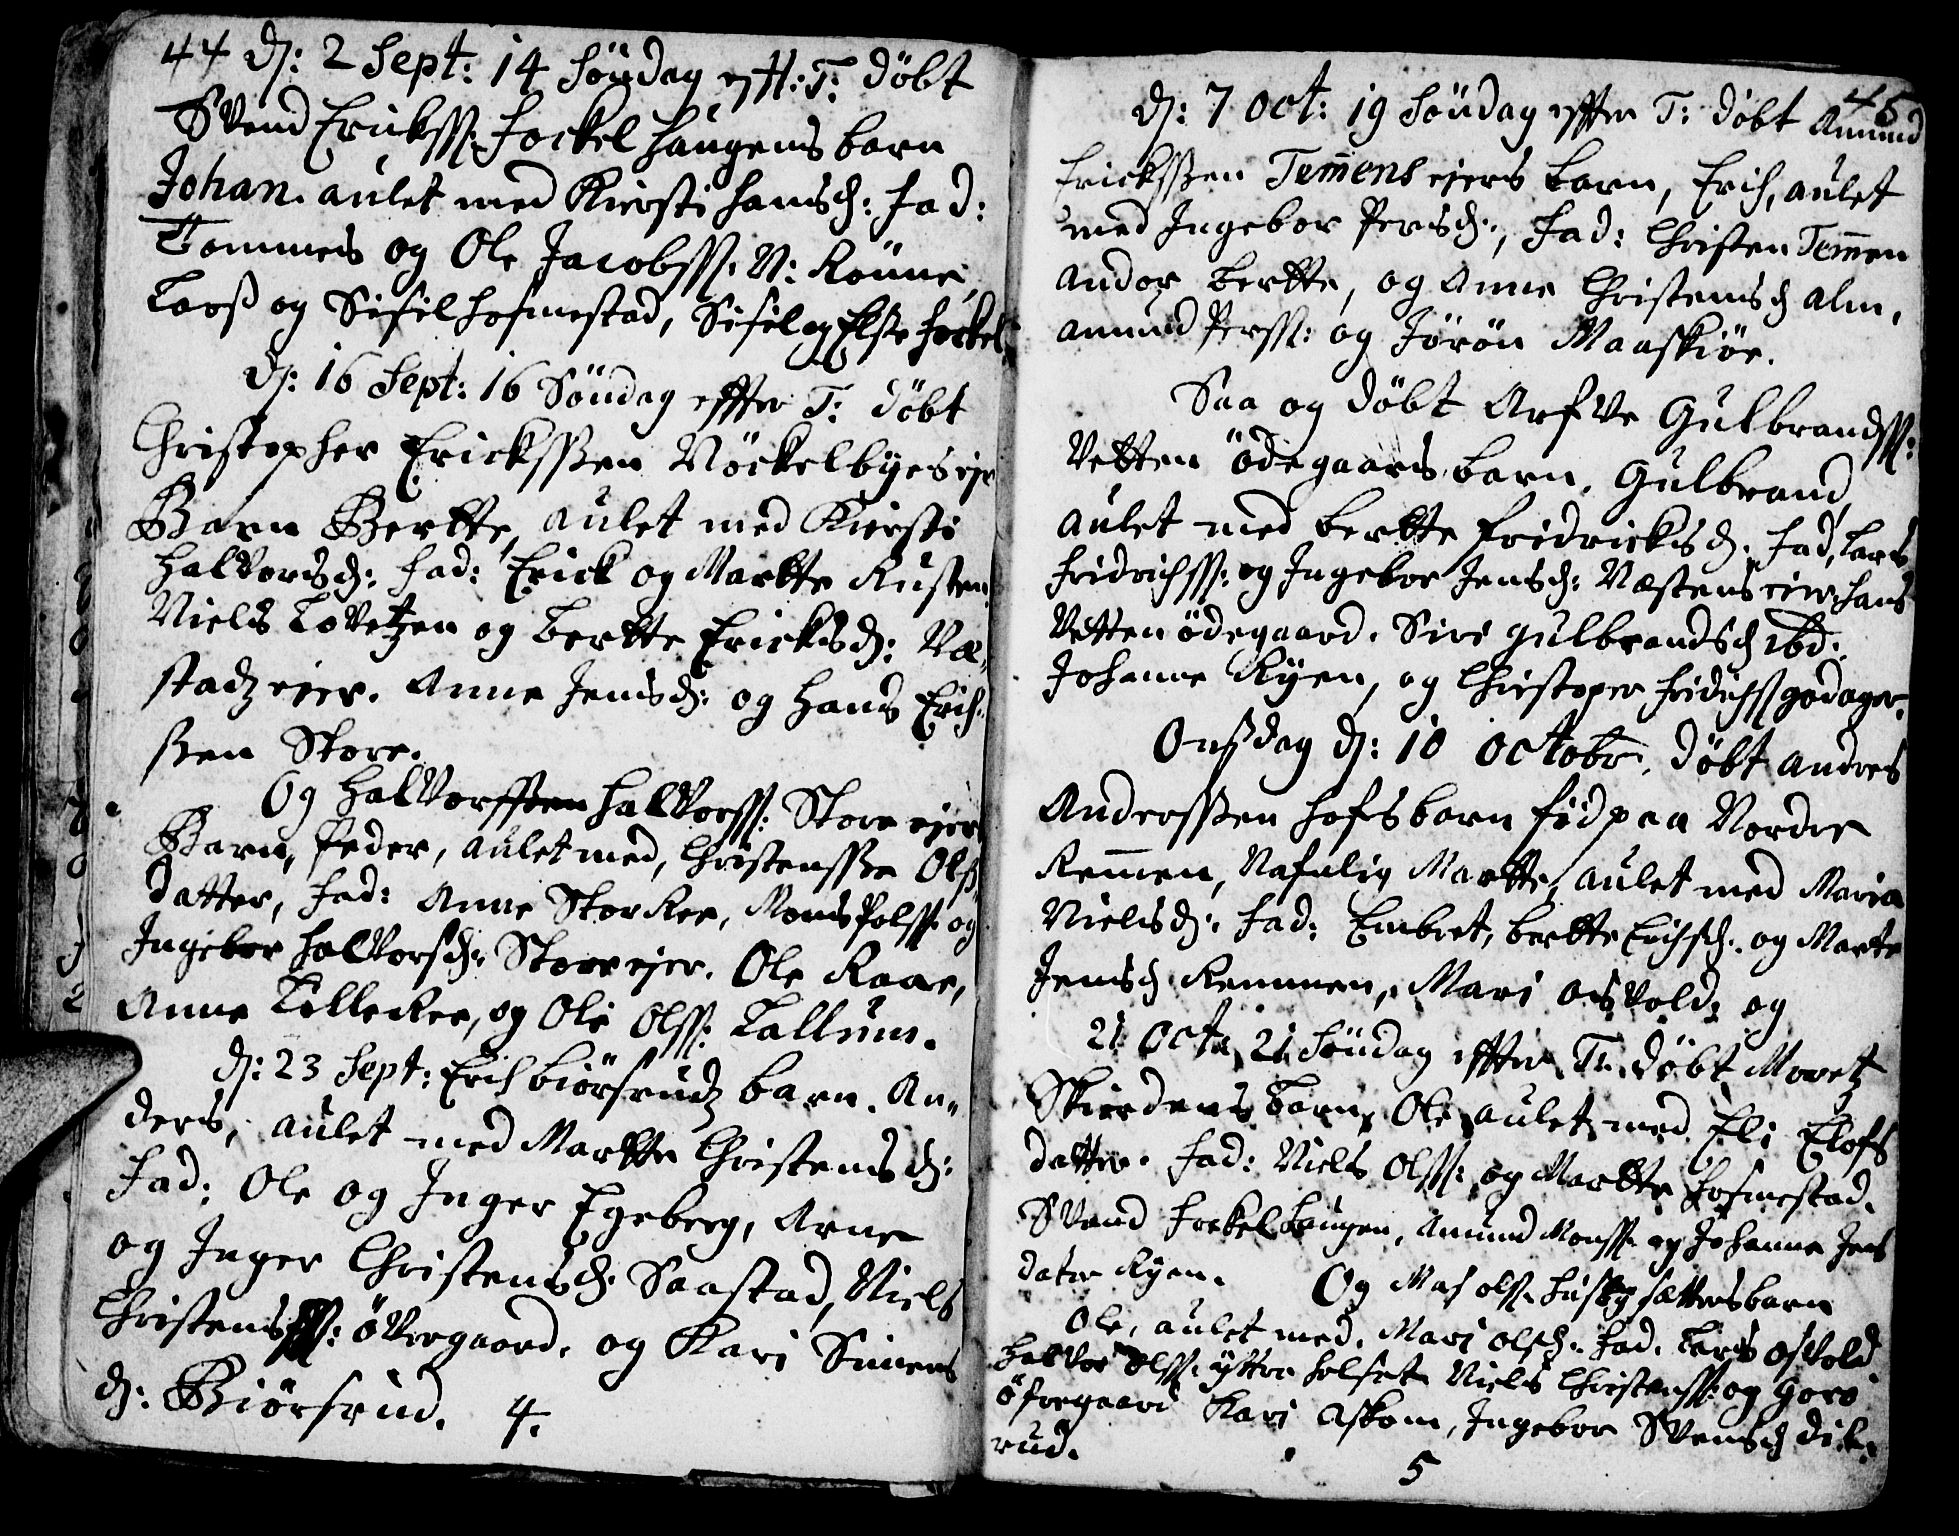 44 dj: 2 Sept: 14 Söndag eft: T: döbt
Svend Erickss: Fockel haugens barn
Johan. aulet med Kiersti hansd: Fad:
Tommes og Ole Jacobss. N: Rönne,
Larß og Sisil hofmestad, Sisil og Else Fockel
dj: 16 Sept: 16 Söndag effter T: döbt
Christopher Erickssen Nöckelbyes ejr
Barn Bertte, aulet med Kiersti
halvorsd: Fad: Erick og Martte Rusten
Niels Lovetzen og bertte Ericksd: Væ-
stadz ejer. Anne Jensd: og Hans Erich-
ssen Store.
Og halvorssen halvorss: Store ejers
Barn, Peder, aulet med, Christensse Olß
datter, Fad: Anne Storker, Mons Polss. og
Ingebor halvorsd: Store ejer. Ole Raae,
Anne Lilleker, og Ole Olss: Lallum.
dj: 23 Sept: Erich biörsrudz barn. An-
ders, aulet med Martte Christensd:
Fad: Ole og Inger Egeberg, Arne
og Inger Christensd. Saastad, Niels
Christenss: övregaard. og Kari Simens
d: Biörsrud. 4.
45
dj: 7 Oct: 19 Söndag effter T: döbt Amund
Erickssen Temens ejers barn, Erich, aulet
med Ingebor Persd:, Fad: Christen Temen
Andor bertte, og Anne Christensd Alm,
Amund Perss: og Jörön Maaskiör.
Saa og döbt Arfve Gulbrandss:
Vetten ödegaards barn, Gulbrand,
aulet med bertte Fridricksd. Fad, Lars
Fridrichss: og Ingebor Jensd: Næstens eier hans
Vetten ödegaard. Siri gulbrandsd ibd:
Johanne Ryen, og Christoper Fridichss godager.
Onsdag dj: 10 Octobr. döbt Andres
Anderssen Hofs barn föd paa Nordre
Remmen, Nafnlig Martte, aulet med Maria
Nielsd. Fad: Embret, bertte Erichsd. og Marte
Jensd Remmen, Mari Osvold, og
21 Oct, 21 Söndag effter T: döbt Moretz
Skierdens barn, Ole, aulet med Eli Elofs
datter. Fad: Niels Olss: og Martte hofmestad.
Svend Fockelhaugen, Amund Monss og Johanne Jens
dater Ryen. Og Mas olss. husebysætters barn
Ole, aulet med. Mari olsd. Fad. Lars Osvold
halvor olss. yttre holset Niels Christenss: og Goro
öfregaard Kari Askom, Ingebor Svensd dik-
rud.
5